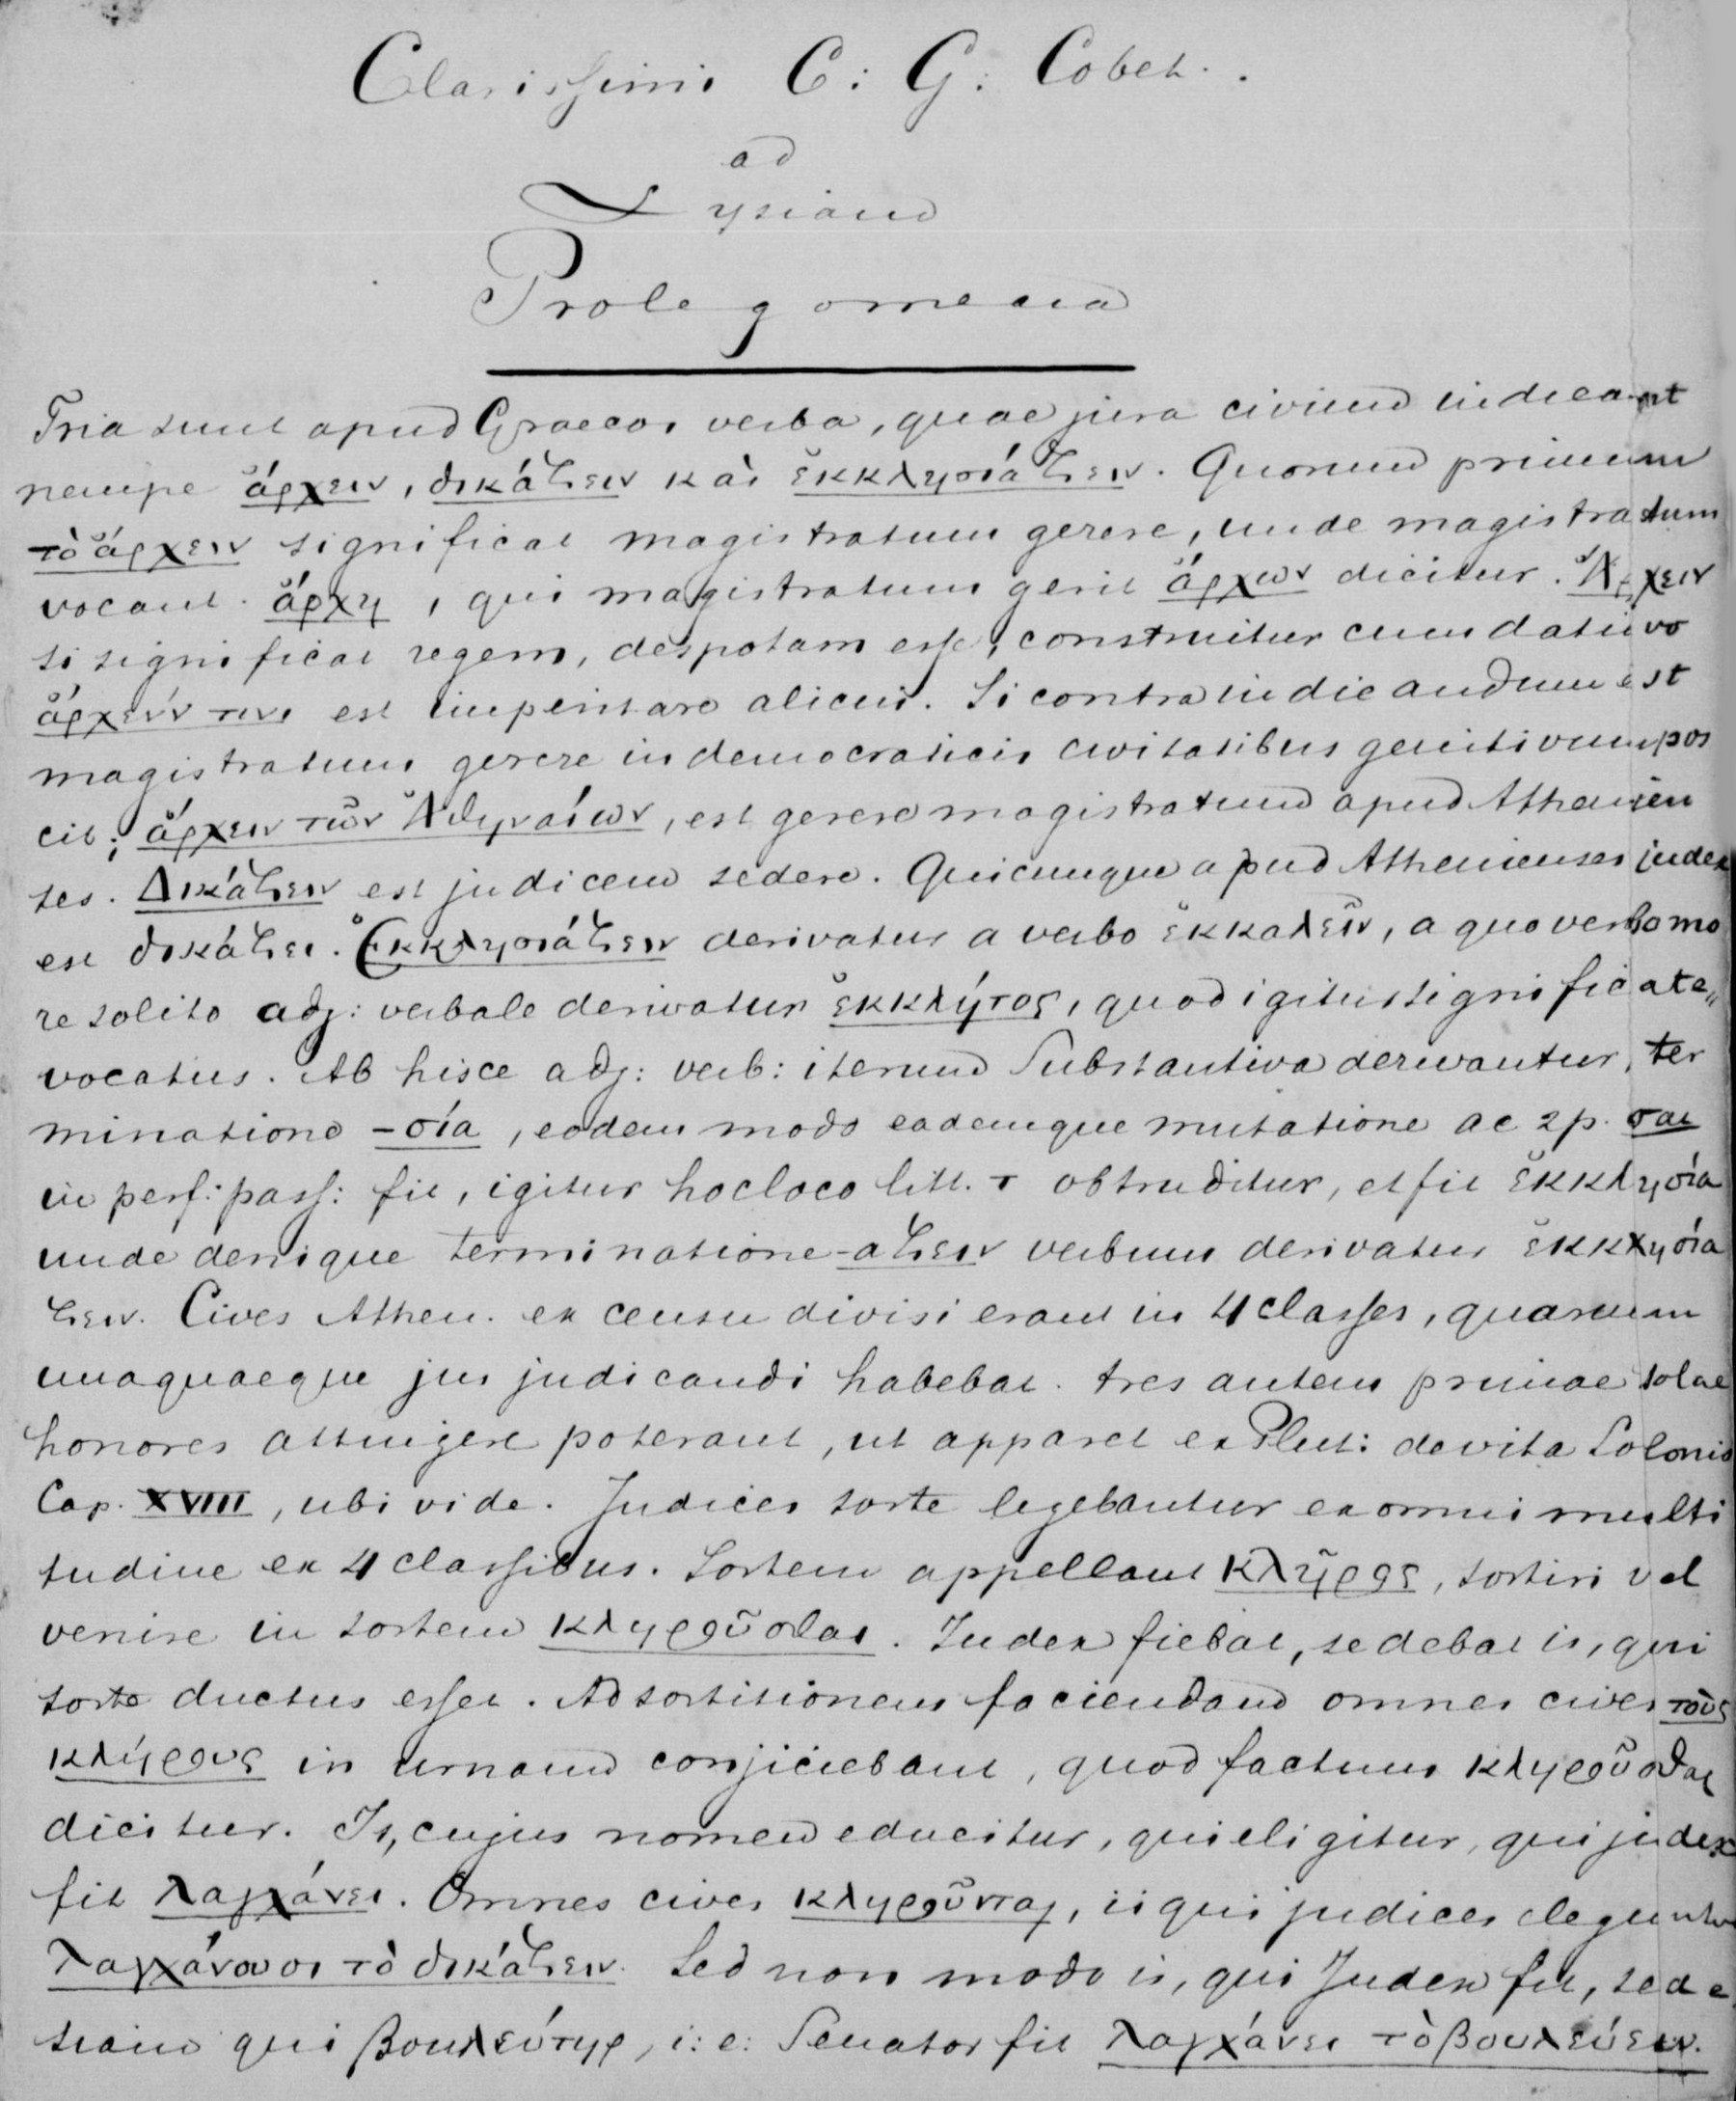 Clarissimi C: G: Cobet.
ad
Lysiam
Prolegomena
Tria sunt apud Graecos verba, quae jura civium indicant
nempe ἄρχειν, δικάζειν καὶ ἐκκλησιάζειν. Quorum primum
τὸ ἄρχειν significat magistratum gerere, unde magistratum
vocant ἄρχη, qui magistratum gerit ἄρχων dicitur. Ἄρχειν
si significat regem, despotam esse, construitur cum dativo
ἄρχειν τινι est imperitare alicui. Si contra indicandum est
magistratum gerere in democraticis civitatibus genitivum pos
cit; ἄρχειν τῶν Ἀθηναίων, est gerere magistratum apud Athenien
ses. Δικάζειν est judicem sedere. Quicumque apud Athenienses judex
est δικάζει. Ἐκκλησιάζειν derivatur a verbo ἐκκαλεῖν, a quo verbo mo
re solito adj: verbale derivatur ἐκκλήτος, quod igitur significat e„
vocatus. Ab hisce adj: verb: iterum Substantiva derivantur, ter
minatione -σία, eodem modo eademque mutatione ac 2 p. σαι
in perf: pass: fit, igitur hoc loco litt. τ obtruditur, et fit ἐκκλησία
unde denique terminatione -αζειν verbum derivatur ἐκκλησιά
ζειν. Cives Athen. ex censu divisi erant in 4 classes, quarum
unaquaeque jus judicandi habebat. tres autem primae solae
honores attingere poterant, ut apparet ex Plut: de vita Solonis
Cap. XVIII, ubi vide. Judices sorte legebantur ex omni multi
tudine ex 4 classibus. Sortem appellant κλῆρος, sortiri vel
venire in sortem κληροῦσθαι. Judex fiebat, sedebat is, qui
sorte ductus esset. Ad sortitionem faciendam omnes cives τοὺς
κλήρους in urnam conjiciebant, quod factum κληροῦσθαι
dicitur. Is, cujus nomen educitur, qui eligitur, qui judex
fit λαγχάνει. Omnes cives κληροῦνται, ii qui judices eleguntur
λαγχάνουσι τὸ δικάζειν. Sed non modo is, qui Judex fit, sed e
tiam qui βουλεύτηρ, i: e: Senator fit λαγχάνει τὸ βουλεύειν.